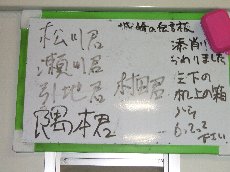 松川君
瀬川君
引地君
隅本君
村田君
城崎の伝言板
添削
おわりました
左下の
机上の箱
から
もってって
下さい